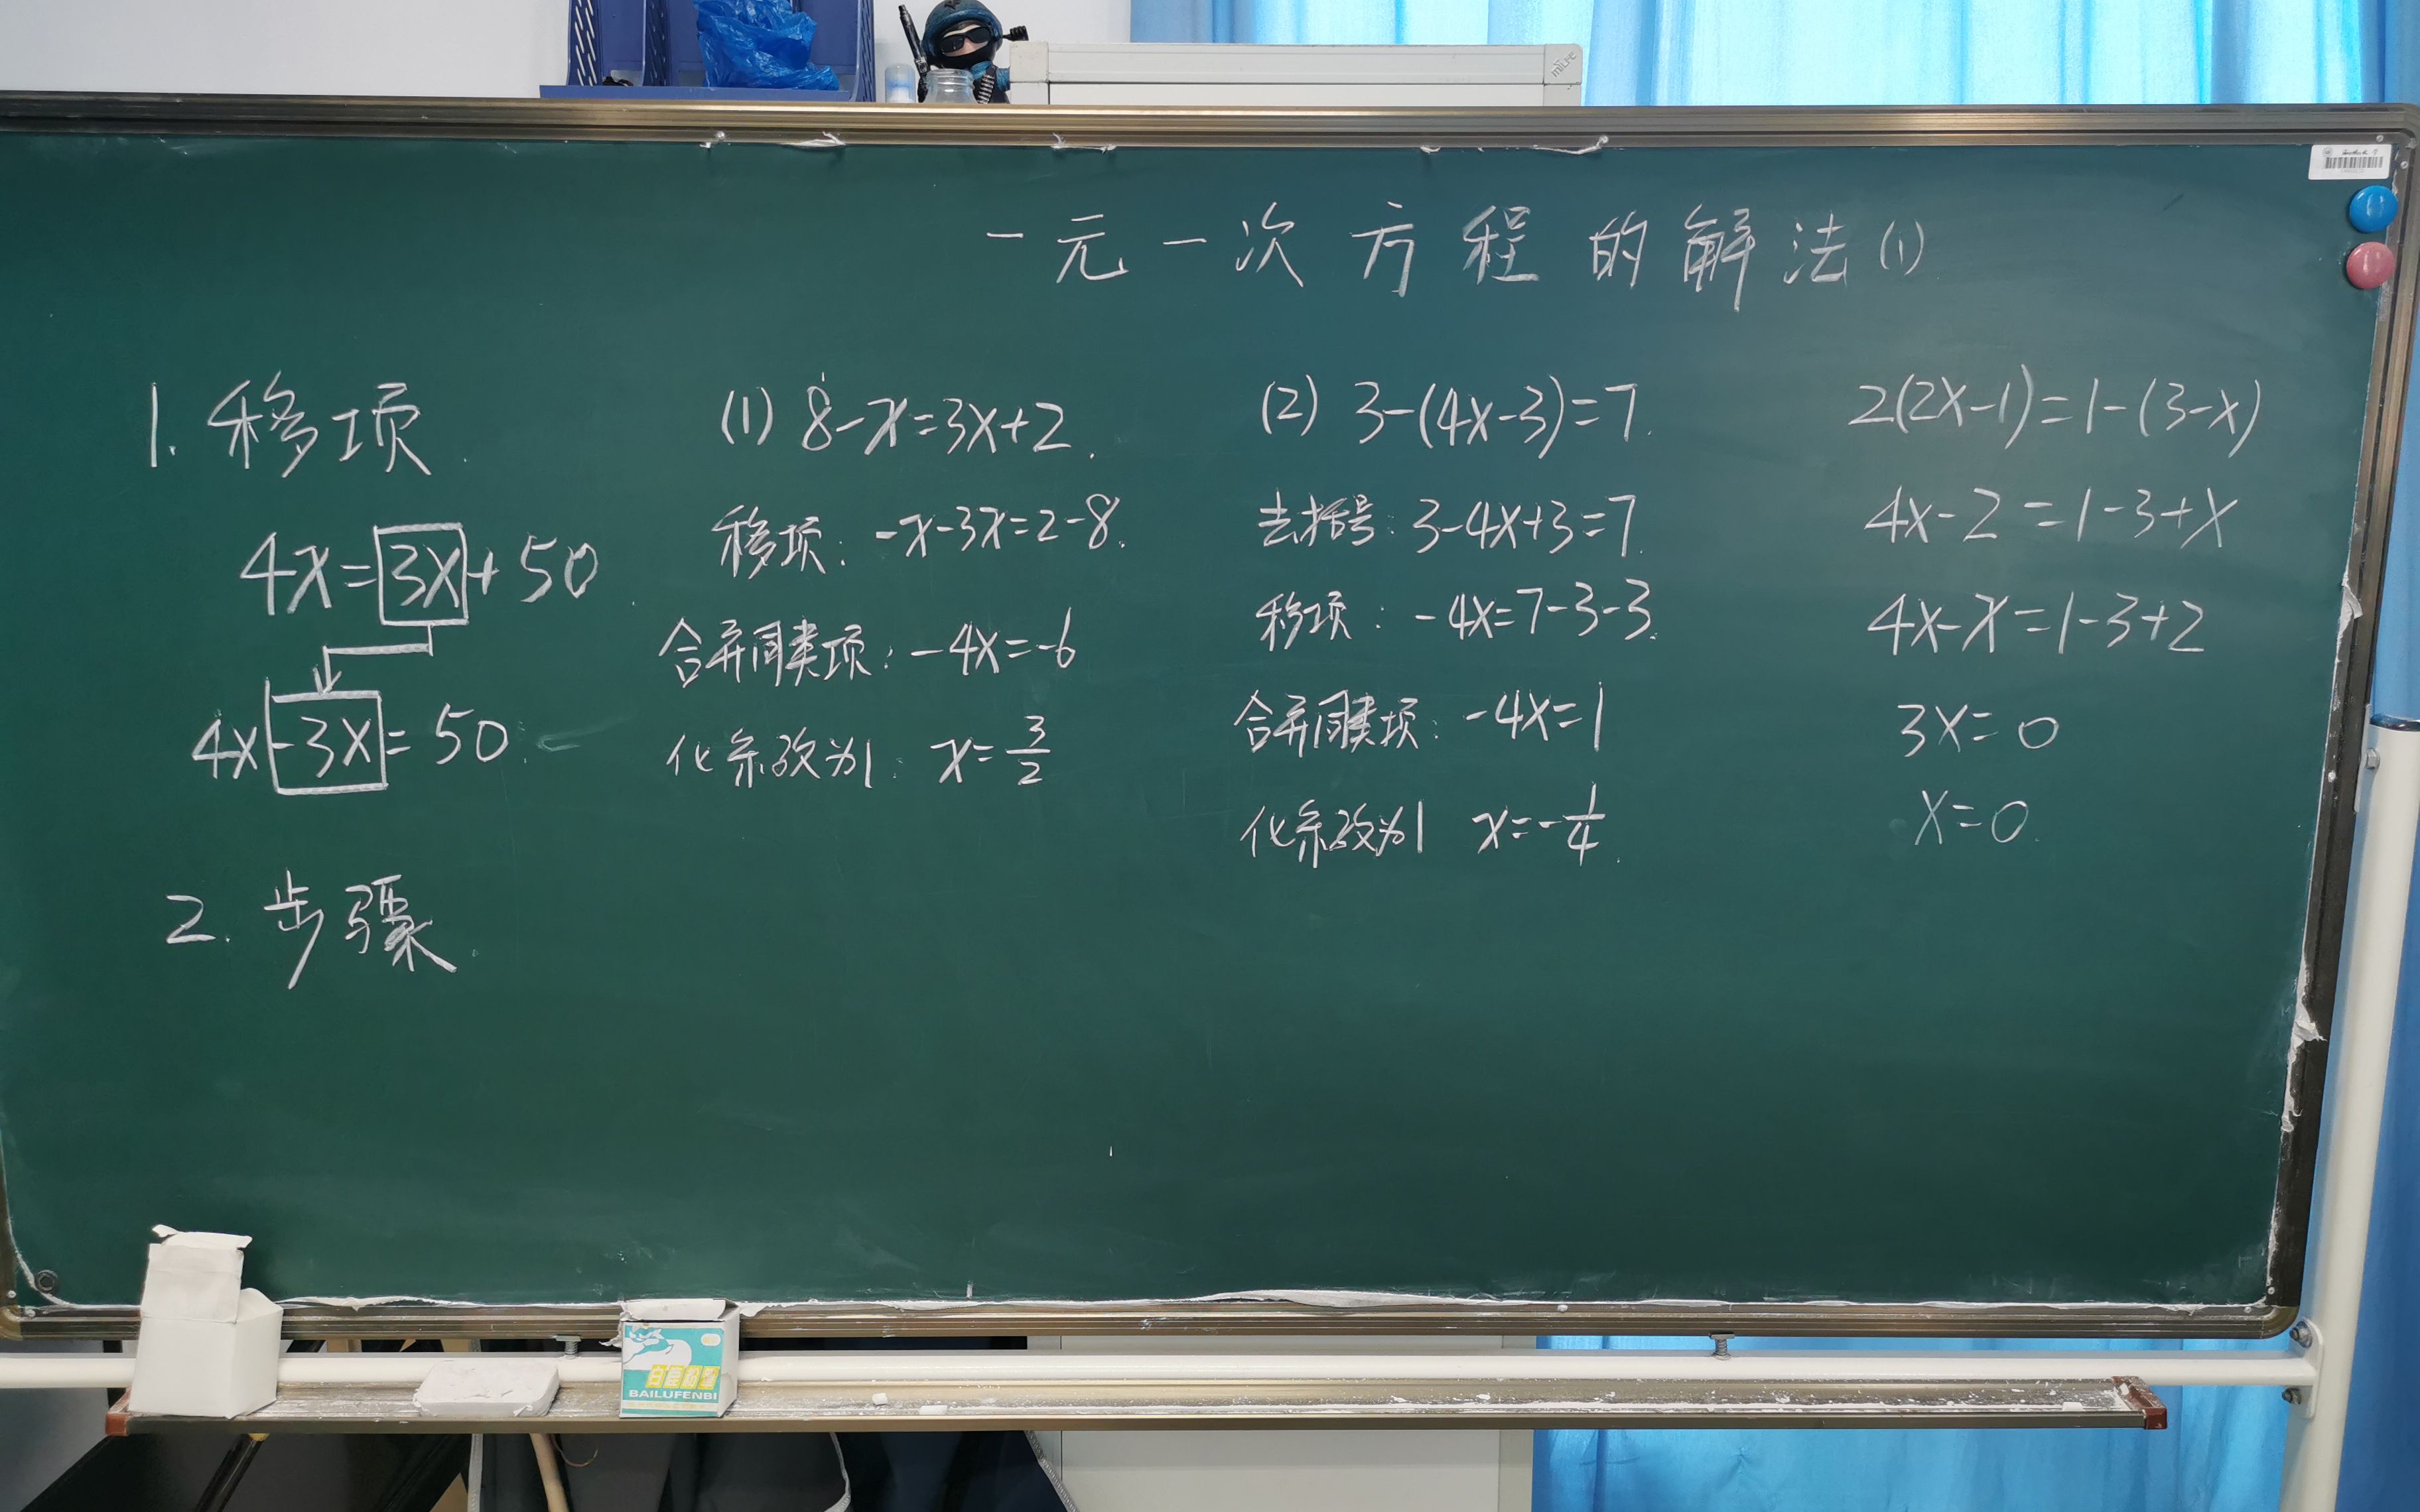 一元一次方程的解法(1)
1. 移项.
4x=3x+50.
4x-3x=50.
2. 步骤.
(1) 8-x=3x+2.
移项: -x-3x=2-8.
合并同类项: -4x=-6
化系数为1: x=3/2
(2) 3-(4x-3)=7.
去括号: 3-4x+3=7.
移项: -4x=7-3-3.
合并同类项: -4x=1
化系数为1 x=-1/4.
2(2x-1)=1-(3-x)
4x-2=1-3+x
4x-x=1-3+2
3x=0
x=0.
BAILUFENBI